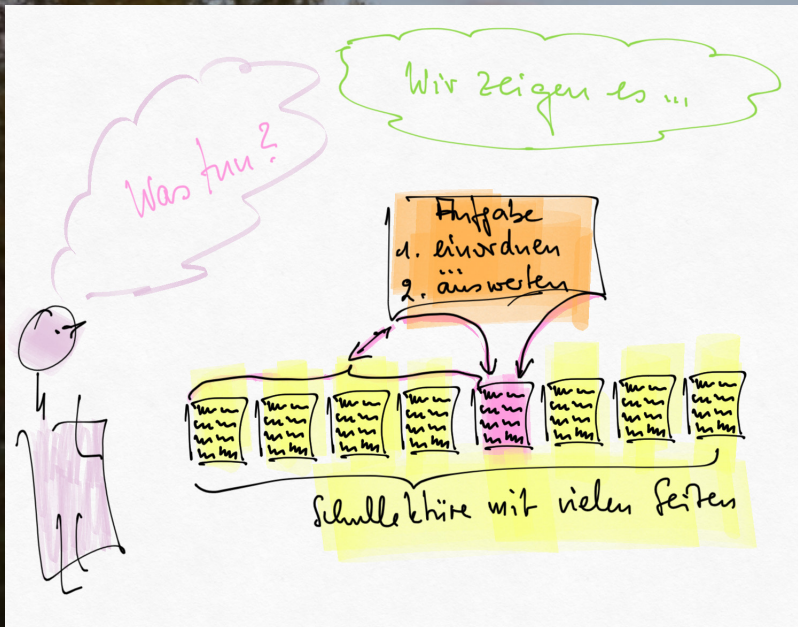 Wir zeigen es ...
Was tun?
Aufgabe
1. einordnen
2. auswerten
Schullektüre mit vielen Seiten